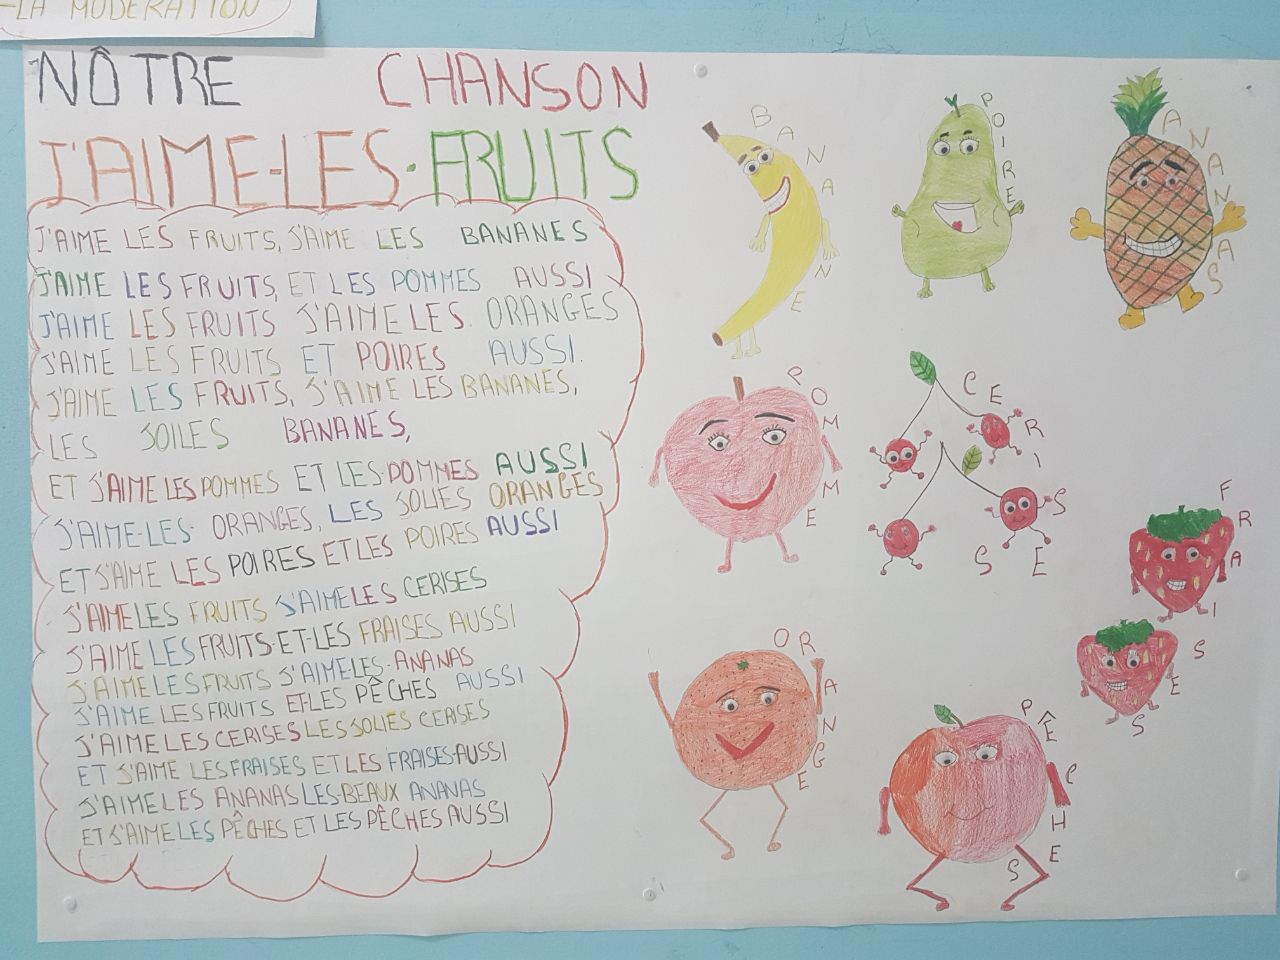 -LA MODÉRATION
NÔTRE CHANSON
J'AIME-LES-FRUITS
J'AIME LES FRUITS, J'AIME LES BANANES
J'AIME LES FRUITS, ET LES POMMES AUSSI
J'AIME LES FRUITS J'AIME LES. ORANGES
J'AIME LES FRUITS ET POIRES AUSSI.
J'AIME LES FRUITS, J'AIME LES BANANES,
LES JOILES BANANES,
ET J'AIME LES POMMES ET LES POMMES AUSSI
J'AIME-LES- ORANGES, LES JOLIES ORANGES
ET J'AIME LES POIRES ET LES POIRES AUSSI
J'AIME LES FRUITS J'AIME LES CERISES
J'AIME LES FRUITS-ET-LES FRAISES AUSSI
J'AIME LES FRUITS J'AIME LES- ANANAS
J'AIME LES FRUITS ET-LES PÊCHES AUSSI
J'AIME LES CERISES LES JOLIES CERISES
ET J'AIME LES FRAISES ET LES FRAISES-AUSSI
J'AIME LES ANANAS LES-BEAUX ANANAS
ET J'AIME LES PÊCHES ET LES PÊCHES AUSSI
BANANE
POIRE
ANANAS
POMME
CERISSE
FRAISES
ORANGE
PÊCHES